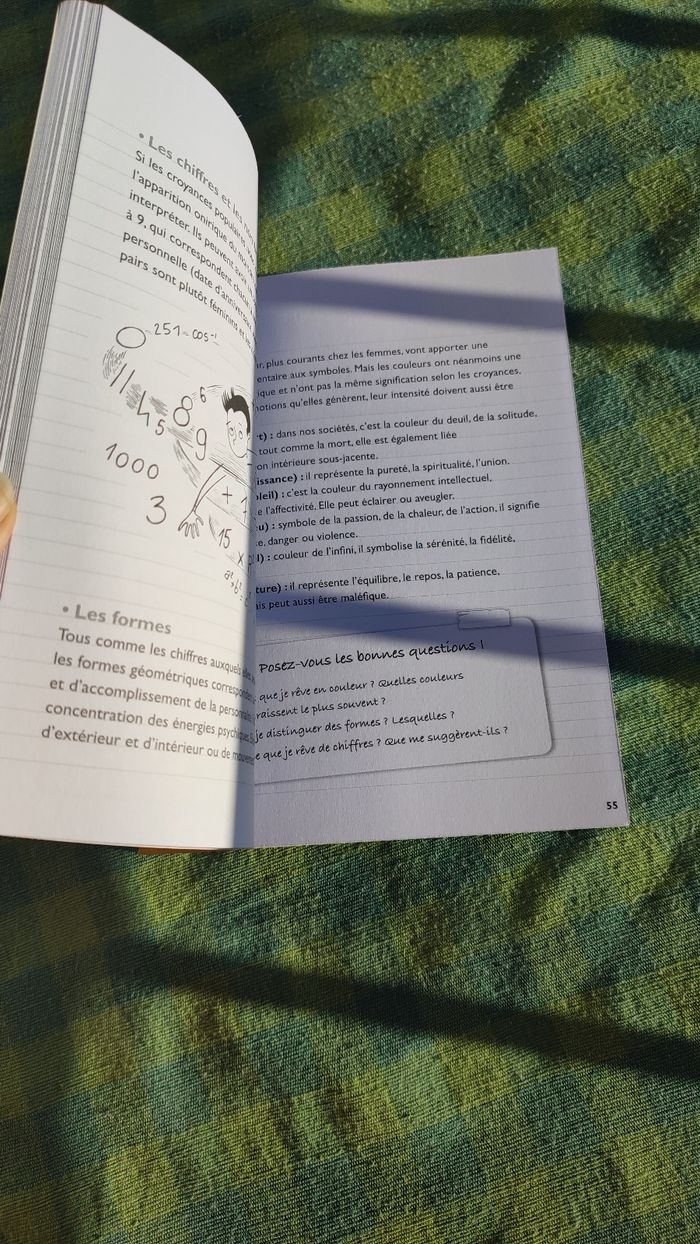 • Les chiffres et les
Si les croyances populaires
l'apparition onirique du
interpréter. Ils peuvent avoir
à 9, qui correspondent
personnelle (date d'anniversaire
pairs sont plutôt féminins et
0 251 - cos⁻¹
11 4 5 8 6
9
1000
3
+ 1
15 x
a² + b² =
• Les formes
Tous comme les chiffres auxquels
les formes géométriques
et d'accomplissement de la
concentration des énergies
d'extérieur et d'intérieur ou de
plus courants chez les femmes, vont apporter une
aux symboles. Mais les couleurs ont néanmoins une
et n'ont pas la même signification selon les croyances,
qu'elles génèrent, leur intensité doivent aussi être
: dans nos sociétés, c'est la couleur du deuil, de la solitude,
tout comme la mort, elle est également liée
intérieure sous-jacente.
: il représente la pureté, la spiritualité, l'union.
: c'est la couleur du rayonnement intellectuel,
l'affectivité. Elle peut éclairer ou aveugler.
: symbole de la passion, de la chaleur, de l'action, il signifie
danger ou violence.
: couleur de l'infini, il symbolise la sérénité, la fidélité,
: il représente l'équilibre, le repos, la patience,
peut aussi être maléfique.
Posez-vous les bonnes questions !
que je rêve en couleur ? Quelles couleurs
le plus souvent ?
je distinguer des formes ? Lesquelles ?
que je rêve de chiffres ? Que me suggèrent-ils ?
55